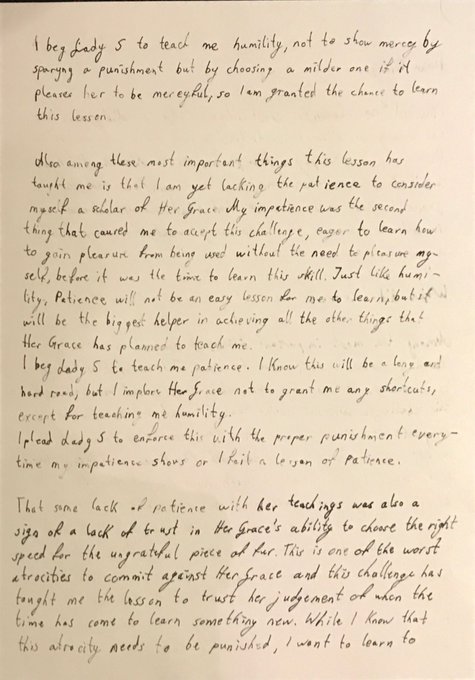 I beg Lady S to teach me humility, not to show mercy by
sparyng a punishment but by choosing a milder one if it
pleases her to be mercyful, so I am granted the chance to learn
this lesson.
Also among these most important things this lesson has
taught me is that I am yet lacking the patience to consider
myself a scholar of Her Grace. My impatience was the second
thing that caused me to accept this challenge, eager to learn how
to gain pleasure from being used without the need to pleasure my-
self, before it was the time to learn this skill. Just like humi-
lity, Patience will not be an easy lesson for me to learn, but it
will be the biggest helper in achieving all the other things that
Her Grace has planned to teach me.
I beg Lady S to teach me patience. I Know this will be a long and
hard road, but I implore Her Grace not to grant me any shortcuts,
except for teaching me humility.
I plead Lady S to enforce this with the proper punishment every-
time my impatience shows or I fail a lesson of Patience.
That same lack of patience with her teachings was also a
sign of a lack of trust in Her Grace's ability to choose the right
speed for the ungrateful piece of fur. This is one of the worst
atrocities to commit against Her Grace and this challenge has
tought me the lesson to trust her judgement of when the
time has come to learn something new. While I Know that
this atrocity needs to be punished, I want to learn to